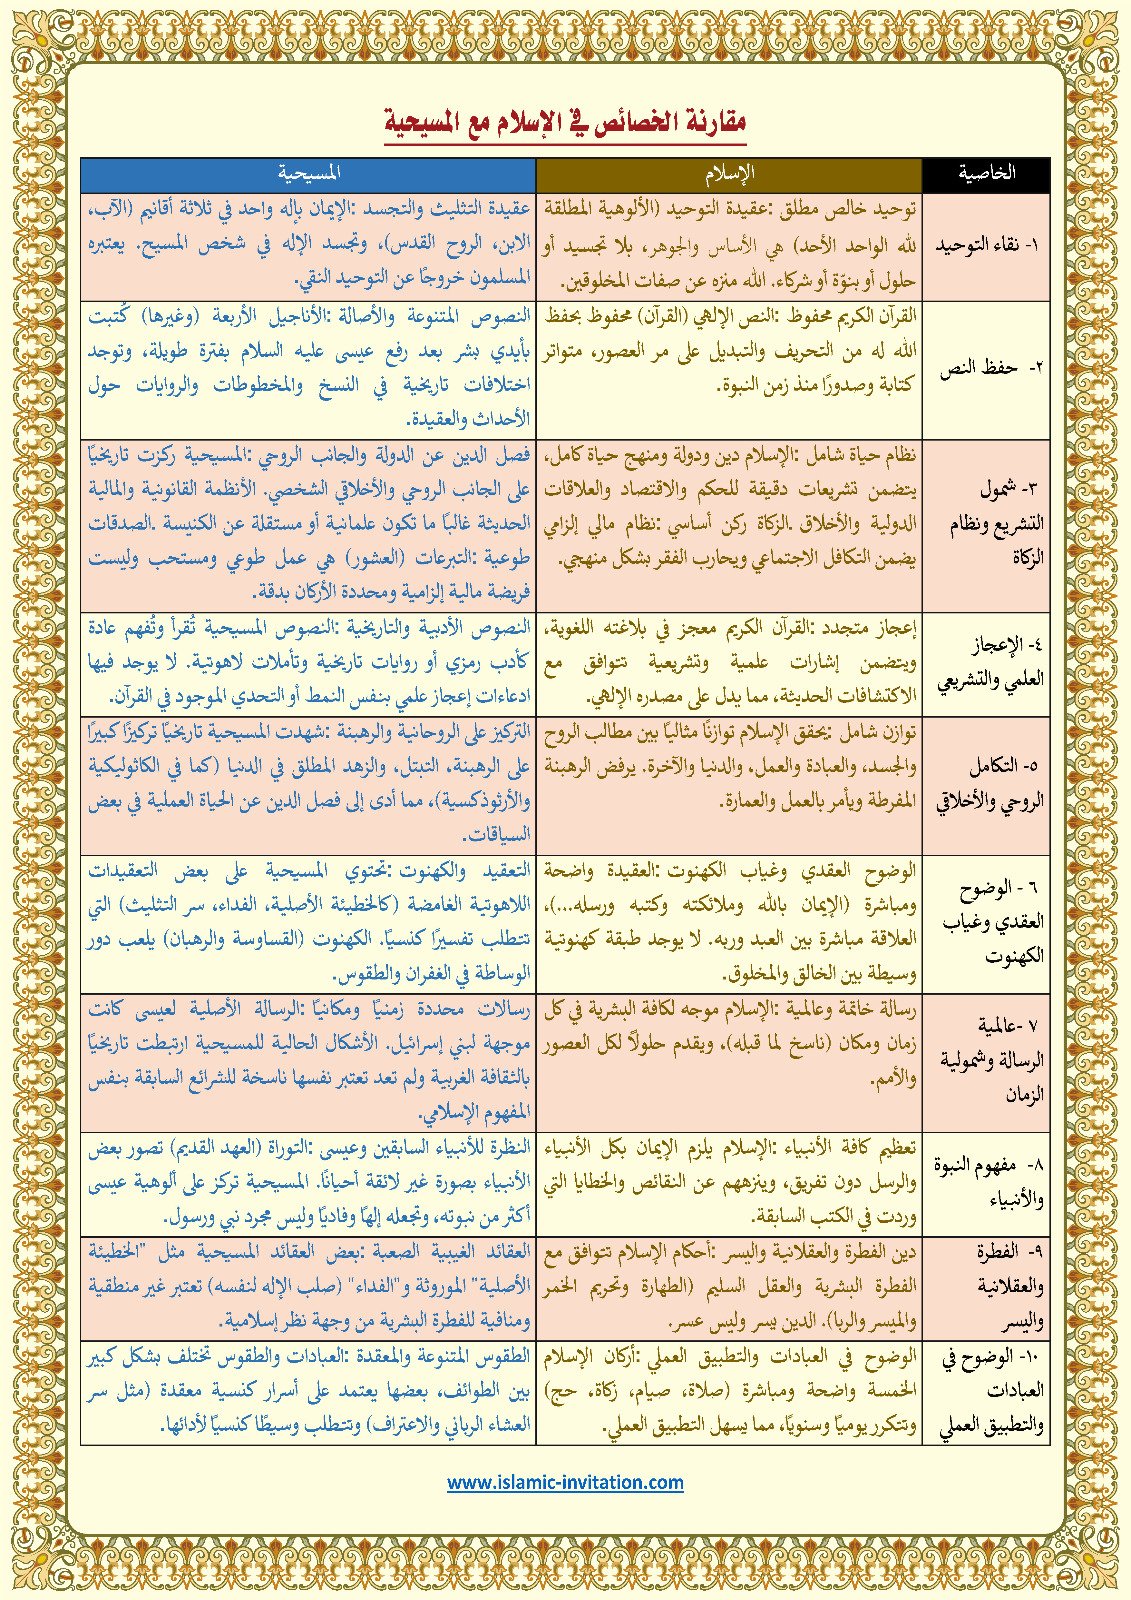 مقارنة الخصائص في الإسلام مع المسيحية
الخاصية
الإسلام
المسيحية
١- نقاء التوحيد
توحيد خالص مطلق :عقيدة التوحيد (الألوهية المطلقة
لله الواحد الأحد) هي الأساس والجوهر، بلا تجسيد أو
حلول أو بنوّة أو شركاء. الله منزه عن صفات المخلوقين.
عقيدة التثليث والتجسد :الإيمان بإله واحد في ثلاثة أقانيم (الآب،
الابن، الروح القدس)، وتجسد الإله في شخص المسيح. يعتبره
المسلمون خروجًا عن التوحيد النقي.
٢- حفظ النص
القرآن الكريم محفوظ :النص الإلهي (القرآن) محفوظ بحفظ
الله له من التحريف والتبديل على مر العصور، متواتر
كتابة وصدورًا منذ زمن النبوة.
النصوص المتنوعة والأصالة :الأناجيل الأربعة (وغيرها) كُتبت
بأيدي بشر بعد رفع عيسى عليه السلام بفترة طويلة، وتوجد
اختلافات تاريخية في النسخ والمخطوطات والروايات حول
الأحداث والعقيدة.
٣- شمول
التشريع ونظام
الزكاة
نظام حياة شامل :الإسلام دين ودولة ومنهج حياة كامل،
يتضمن تشريعات دقيقة للحكم والاقتصاد والعلاقات
الدولية والأخلاق .الزكاة ركن أساسي :نظام مالي إلزامي
يضمن التكافل الاجتماعي ويحارب الفقر بشكل منهجي.
فصل الدين عن الدولة والجانب الروحي :المسيحية ركزت تاريخيًا
على الجانب الروحي والأخلاقي الشخصي. الأنظمة القانونية والمالية
الحديثة غالبًا ما تكون علمانية أو مستقلة عن الكنيسة .الصدقات
طوعية :التبرعات (العشور) هي عمل طوعي ومستحب وليست
فريضة مالية إلزامية ومحددة الأركان بدقة.
٤- الإعجاز
العلمي والتشريعي
إعجاز متجدد :القرآن الكريم معجز في بلاغته اللغوية،
ويتضمن إشارات علمية وتشريعية تتوافق مع
الاكتشافات الحديثة، مما يدل على مصدره الإلهي.
النصوص الأدبية والتاريخية :النصوص المسيحية تُقرأ وتُفهم عادة
كأدب رمزي أو روايات تاريخية وتأملات لاهوتية. لا يوجد فيها
ادعاءات إعجاز علمي بنفس النمط أو التحدي الموجود في القرآن.
٥- التكامل
الروحي والأخلاقي
توازن شامل :يحقق الإسلام توازنًا مثاليًا بين مطالب الروح
والجسد، والعبادة والعمل، والدنيا والآخرة. يرفض الرهبنة
المفرطة ويأمر بالعمل والعمارة.
التركيز على الروحانية والرهبنة :شهدت المسيحية تاريخيًا تركيزًا كبيرًا
على الرهبنة، التبتل، والزهد المطلق في الدنيا (كما في الكاثوليكية
والأرثوذكسية)، مما أدى إلى فصل الدين عن الحياة العملية في بعض
السياقات.
٦ - الوضوح
العقدي وغياب
الكهنوت
الوضوح العقدي وغياب الكهنوت :العقيدة واضحة
ومباشرة (الإيمان بالله وملائكته وكتبه ورسله...)،
العلاقة مباشرة بين العبد وربه. لا يوجد طبقة كهنوتية
وسيطة بين الخالق والمخلوق.
التعقيد والكهنوت :تحتوي المسيحية على بعض التعقيدات
اللاهوتية الغامضة (كالخطيئة الأصلية، الفداء، سر التثليث) التي
تتطلب تفسيرًا كنسيًا. الكهنوت (القساوسة والرهبان) يلعب دور
الوساطة في الغفران والطقوس.
٧ -عالمية
الرسالة وشمولية
الزمان
رسالة خاتمة وعالمية :الإسلام موجه لكافة البشرية في كل
زمان ومكان (ناسخ لما قبله)، ويقدم حلولًا لكل العصور
والأمم.
رسالات محددة زمنيًا ومكانيًا :الرسالة الأصلية لعيسى كانت
موجهة لبني إسرائيل. الأشكال الحالية للمسيحية ارتبطت تاريخيًا
بالثقافة الغربية ولم تعد تعتبر نفسها ناسخة للشرائع السابقة بنفس
المفهوم الإسلامي.
٨- مفهوم النبوة
والأنبياء
تعظيم كافة الأنبياء :الإسلام يلزم الإيمان بكل الأنبياء
والرسل دون تفريق، وينزههم عن النقائص والخطايا التي
وردت في الكتب السابقة.
النظرة للأنبياء السابقين وعيسى :التوراة (العهد القديم) تصور بعض
الأنبياء بصورة غير لائقة أحيانًا. المسيحية تركز على ألوهية عيسى
أكثر من نبوته، وتجعله إلهًا وفاديًا وليس مجرد نبي ورسول.
٩- الفطرة
والعقلانية
واليسر
دين الفطرة والعقلانية واليسر :أحكام الإسلام تتوافق مع
الفطرة البشرية والعقل السليم (الطهارة وتحريم الخمر
والميسر والربا). الدين يسر وليس عسر.
العقائد الغيبية الصعبة :بعض العقائد المسيحية مثل "الخطيئة
الأصلية" الموروثة و"الفداء" (صلب الإله لنفسه) تعتبر غير منطقية
ومنافية للفطرة البشرية من وجهة نظر إسلامية.
١٠- الوضوح في
العبادات
والتطبيق العملي
الوضوح في العبادات والتطبيق العملي :أركان الإسلام
الخمسة واضحة ومباشرة (صلاة، صيام، زكاة، حج)
وتتكرر يوميًا وسنويًا، مما يسهل التطبيق العملي.
الطقوس المتنوعة والمعقدة :العبادات والطقوس تختلف بشكل كبير
بين الطوائف، بعضها يعتمد على أسرار كنسية معقدة (مثل سر
العشاء الرباني والاعتراف) وتتطلب وسيطًا كنسيًا لأدائها.
www.islamic-invitation.com